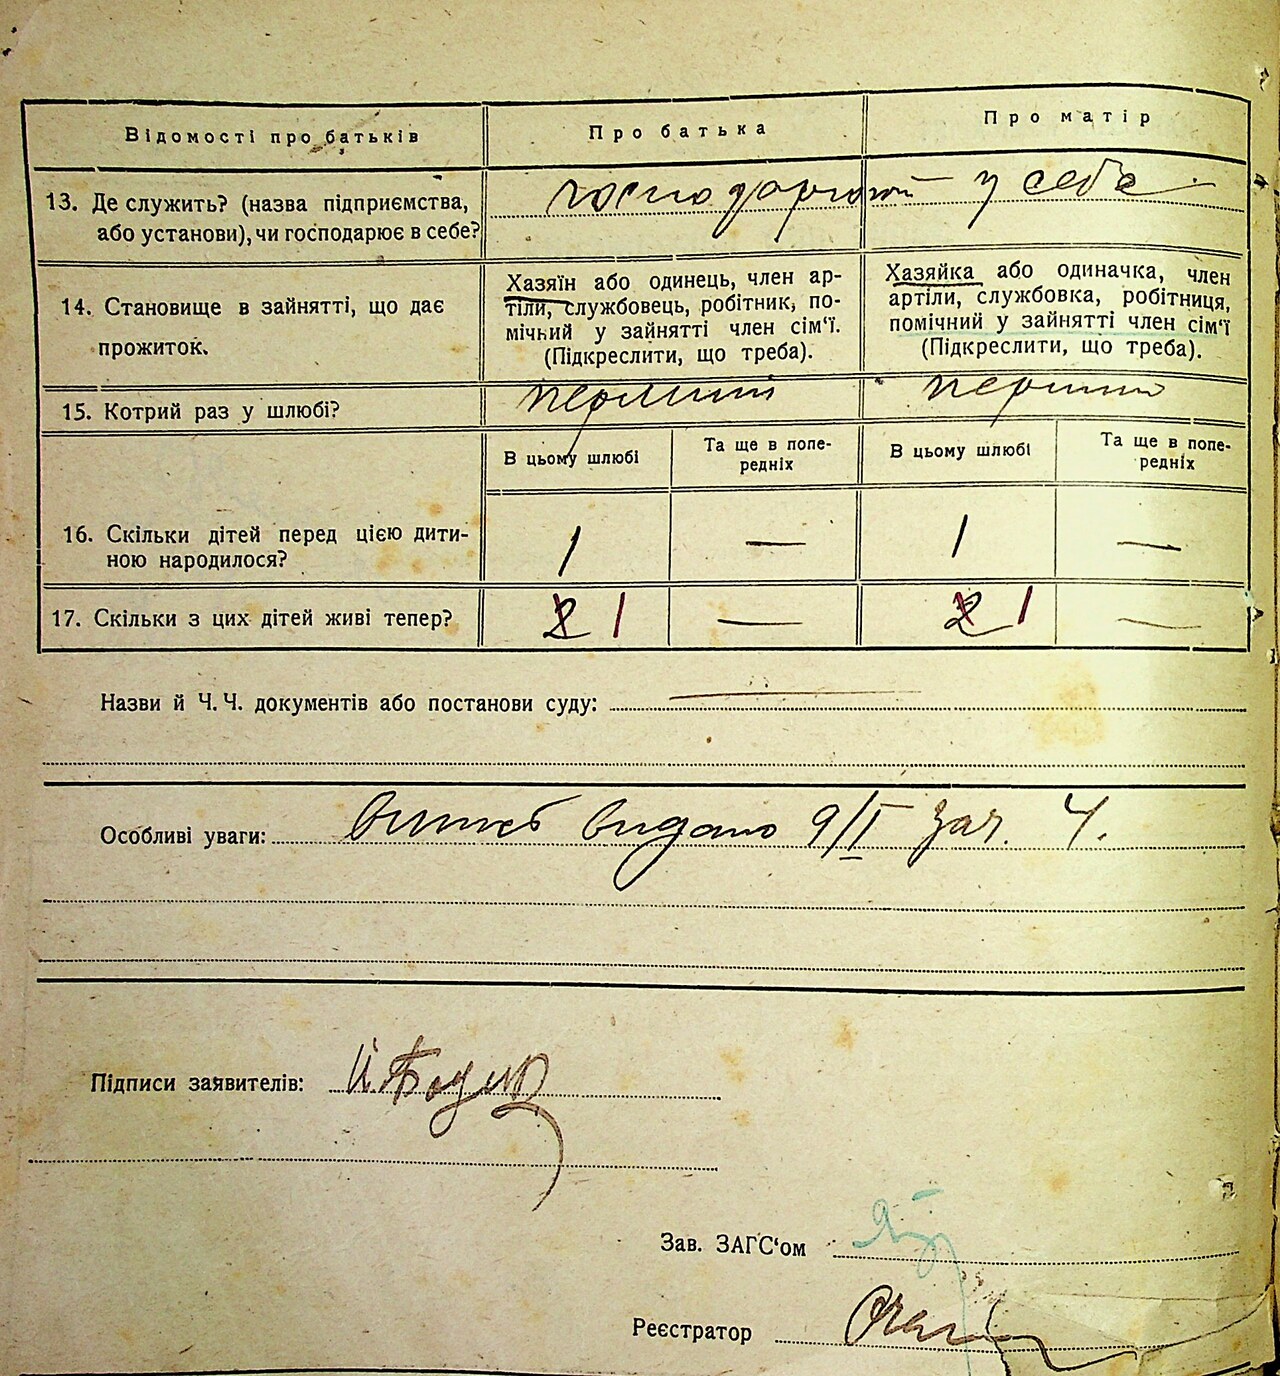 Відомості про батьків
Про батька
Про матір
13. Де служить? (назва підприємства,
або установи), чи господарює в себе?
у себе
14. Становище в зайнятті, що дає
прожиток.
Хазяїн або одинець, член ар-
тіли, службовець, робітник, по-
мічьий у зайнятті член сім'ї.
(Підкреслити, що треба).
Хазяйка або одиначка, член
артіли, службовка, робітниця,
помічний у зайнятті член сім'ї
(Підкреслити, що треба).
15. Котрий раз у шлюбі?
перший
перший
В цьому шлюбі
Та ще в попе-
редніх
В цьому шлюбі
Та ще в попе-
редніх
16. Скільки дітей перед цією дити-
ною народилося?
1 — 1 —
17. Скільки з цих дітей живі тепер?
2 1 — 2 1 —
Назви й Ч. Ч. документів або постанови суду:
Особливі уваги: видано 9/I за ч. 4.
Підписи заявителів:
Зав. ЗАГС'ом
Реєстратор